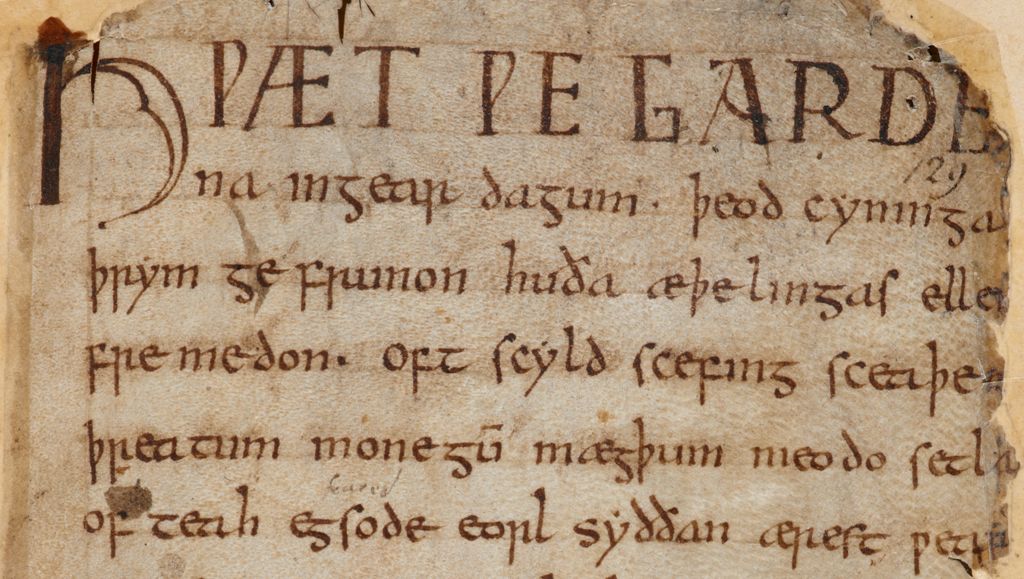 HǷÆT ǷE GARDE
na ingear dagum. þeod cyninga
þrym ge frunon huða æþelingas elle
fre medon. Oft scyld scefing sceaþe
þreatum monegū mægþum meodo setla
of teah egsode eorl syððan ærest
129